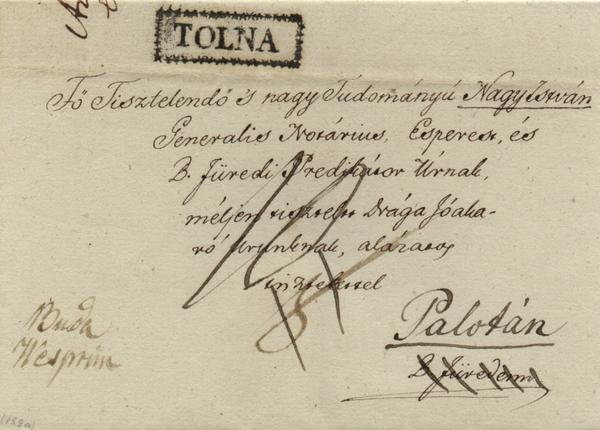 TOLNA
Fő Tisztelendő 's nagy Tudományú Nagy István
Generalis Notárius, Esperest, és
B. Füredi Predikátor Úrnak,
méljen tisztelt Drága Jóaka-
ró Urunknak, alázatos
tisztelettel
Buda
Wesprim
Palotán
B. Füreden